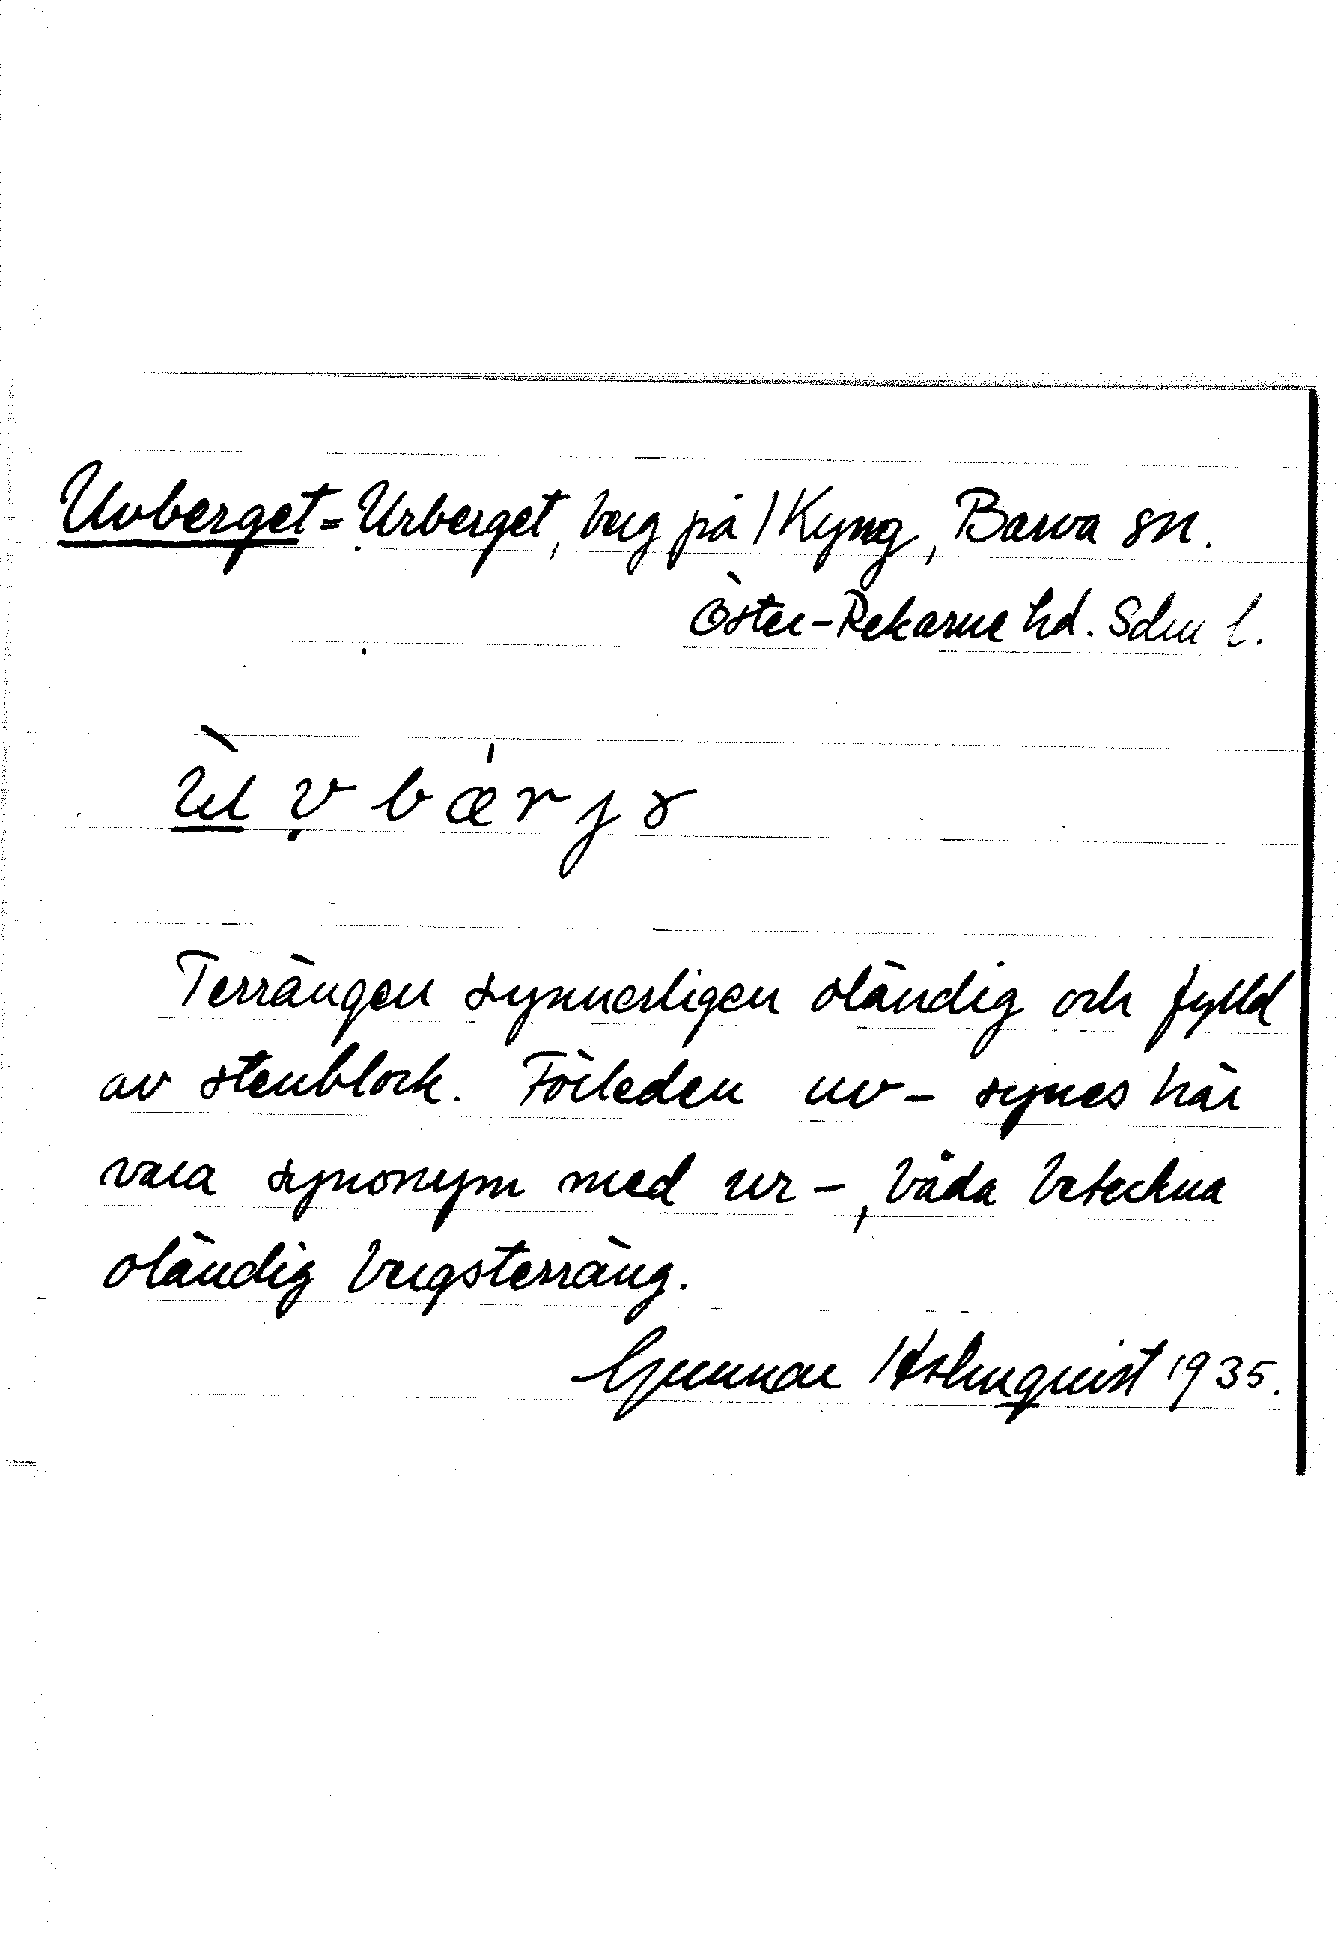 Uvberget = Urberget, berg på /Kyng, Barva sn.
Öster-Rekarne hd. Sdm l.
ù v b æ r j
Terrängen synnerligen oländig och fylld
av stenblock. Förleden uv- synes här
vara synonym med ur-, båda beteckna
oländig bergsterräng.
Gunnar Holmquist 1935.